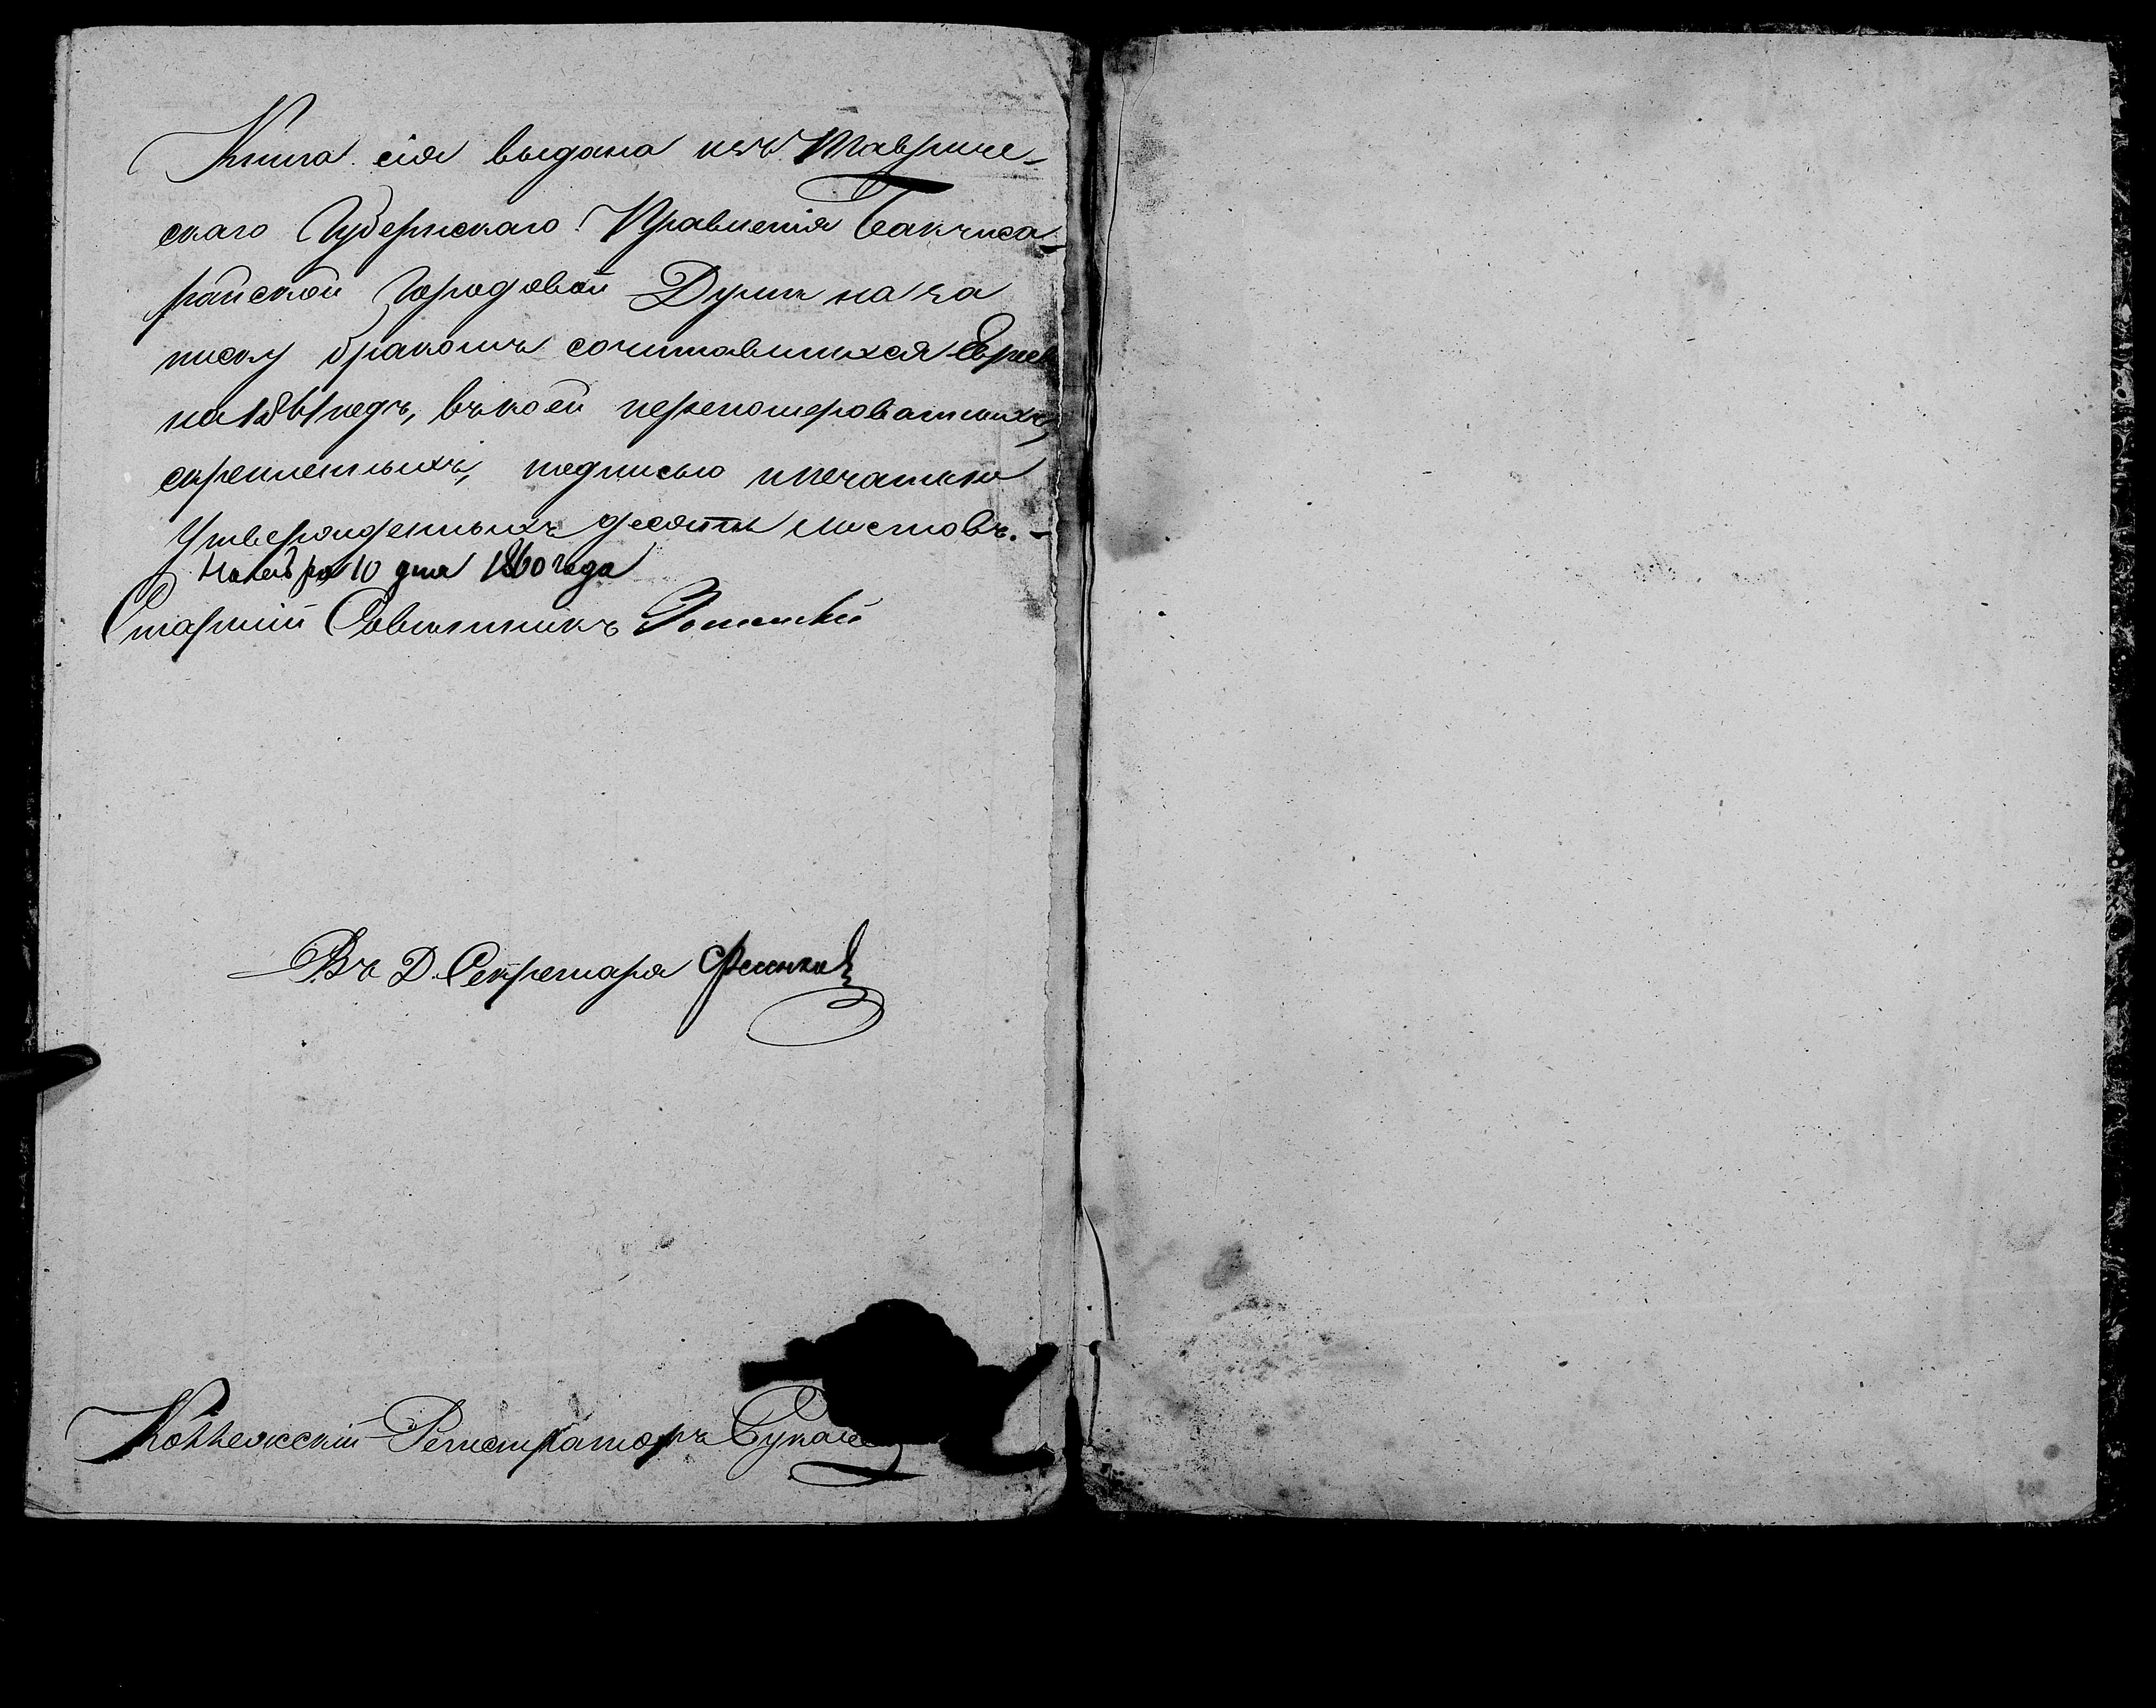 Книга сія выдана изъ Тавриче-
скаго Губернскаго Правленія Бакчиса-
райской Городовой Думѣ на за
писку бракомъ сочитавшихся Евреевъ
на 1861 годъ, въ коей перепомерованныхъ,
скрепленныхъ, подписью и печатью
Утвержденныхъ десять листовъ. -
Ноября 10 дня 1860 года
Старшій Совѣтникъ
Въ Д. Секретаря
Коллежскій Регистраторъ